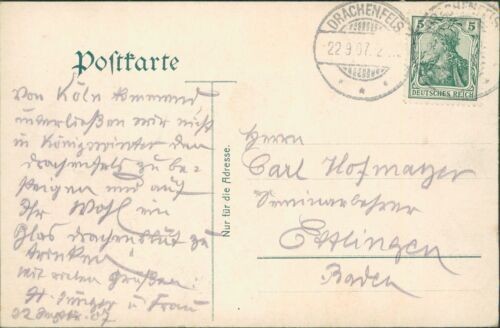 Postkarte
DRACHENFELS
22.9.07.
5 5
DEUTSCHES REICH
Von Köln kommend,
unterließen wir nicht
in Königswinter den
Drachenfels zu be-
steigen und auf
Ihr Wohl ein
Glas Drachenblut zu
trinken!
Mit vielen Grüßen
u Frau
22 Septbr. 07
Nur für die Adresse.
Herrn
Carl Hofmatzer
Seminarlehrer
Ettlingen
Baden